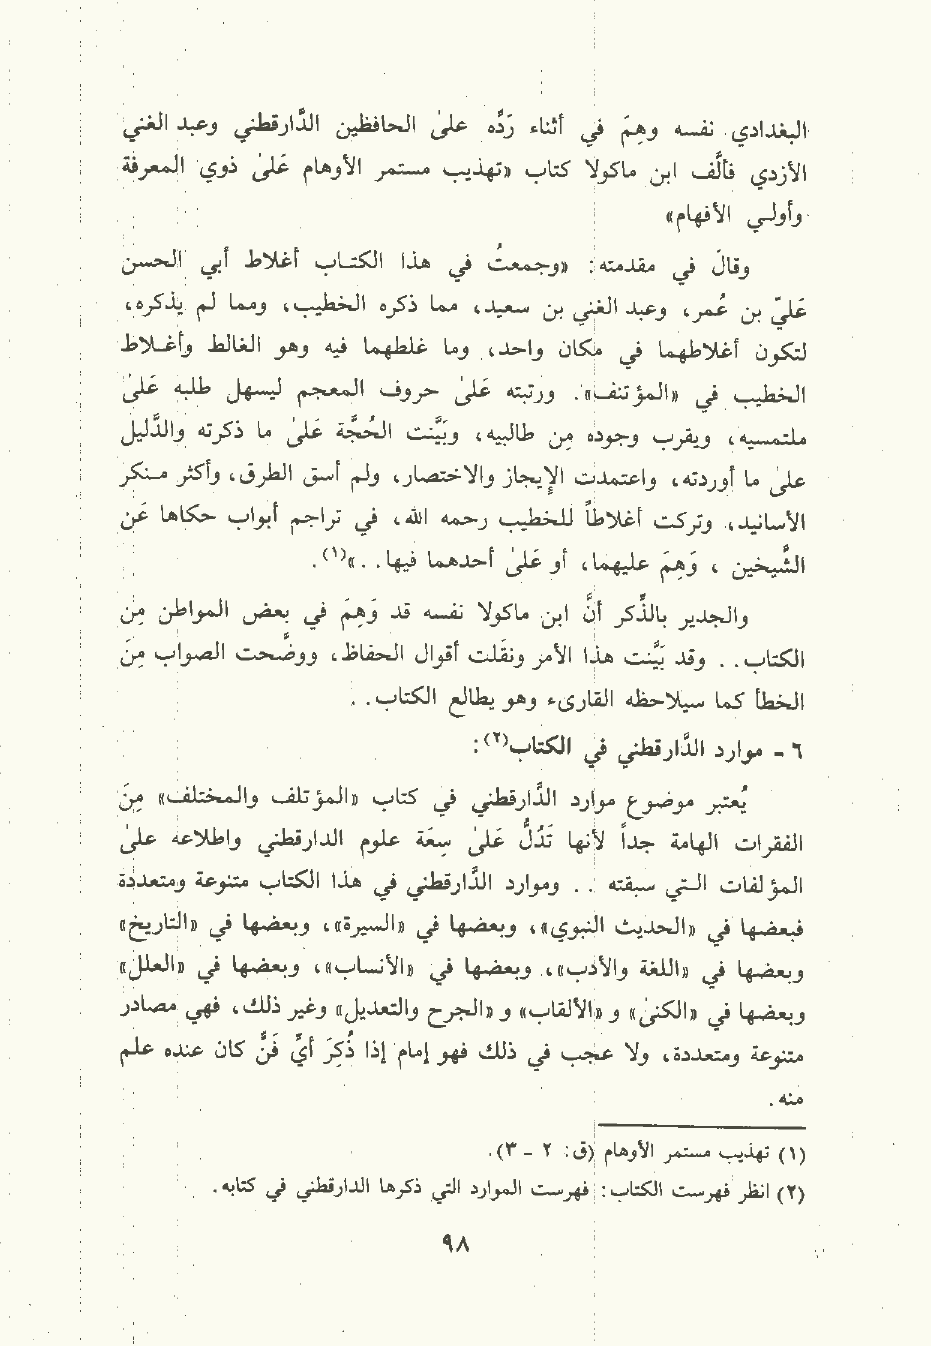 البغدادي نفسه وهِمَ في أثناء رَدِّه علىٰ الحافظين الدَّارقطني وعبد الغني
الأزدي فألَّف ابن ماكولا كتاب «تهذيب مستمر الأوهام عَلىٰ ذوي المعرفة
وأولي الأفهام»
وقالَ في مقدمته: «وجمعتُ في هذا الكتاب أغلاط أبي الحسن
عَليّ بن عُمر، وعبد الغني بن سعيد، مما ذكره الخطيب، ومما لم يذكره،
لتكون أغلاطهما في مكان واحد، وما غلطهما فيه وهو الغالط وأغلاط
الخطيب في «المؤتنف». ورتبته عَلىٰ حروف المعجم ليسهل طلبه عَلىٰ
ملتمسيه، ويقرب وجوده مِن طالبيه، وبَيَّنت الحُجَّة عَلىٰ ما ذكرته والدَّليل
علىٰ ما أوردته، واعتمدت الإيجاز والاختصار، ولم أسق الطرق، وأكثر منكر
الأسانيد، وتركت أغلاطاً للخطيب رحمه الله، في تراجم أبواب حكاها عَن
الشَّيخين، وَهِمَ عليهما، أو عَلىٰ أحدهما فيها. . »(١).
والجدير بالذِّكر أنَّ ابن ماكولا نفسه قد وَهِمَ في بعض المواطن مِن
الكتاب. . وقد بَيَّنت هذا الأمر ونقَلت أقوال الحفاظ، ووضَّحت الصواب مِنَ
الخطأ كما سيلاحظه القارىء وهو يطالع الكتاب. .
٦ - موارد الدَّارقطني في الكتاب(٢):
يُعتبر موضوع موارد الدَّارقطني في كتاب «المؤتلف والمختلف» مِنَ
الفقرات الهامة جداً لأنها تَدُلُّ عَلىٰ سِعَة علوم الدارقطني واطلاعه علىٰ
المؤلفات التي سبقته . . وموارد الدَّارقطني في هذا الكتاب متنوعة ومتعددة
فبعضها في «الحديث النبوي»، وبعضها في «السيرة»، وبعضها في «التاريخ»
وبعضها في «اللغة والأدب»، وبعضها في «الأنساب»، وبعضها في «العلل»
وبعضها في «الكنىٰ» و «الألقاب» و «الجرح والتعديل» وغير ذلك، فهي مصادر
متنوعة ومتعددة، ولا عجب في ذلك فهو إمام إذا ذُكِرَ أيِّ فَنٍّ كان عنده علم
منه.
(١) تهذيب مستمر الأوهام (ق: ٢ - ٣).
(٢) انظر فهرست الكتاب: فهرست الموارد التي ذكرها الدارقطني في كتابه.
٩٨